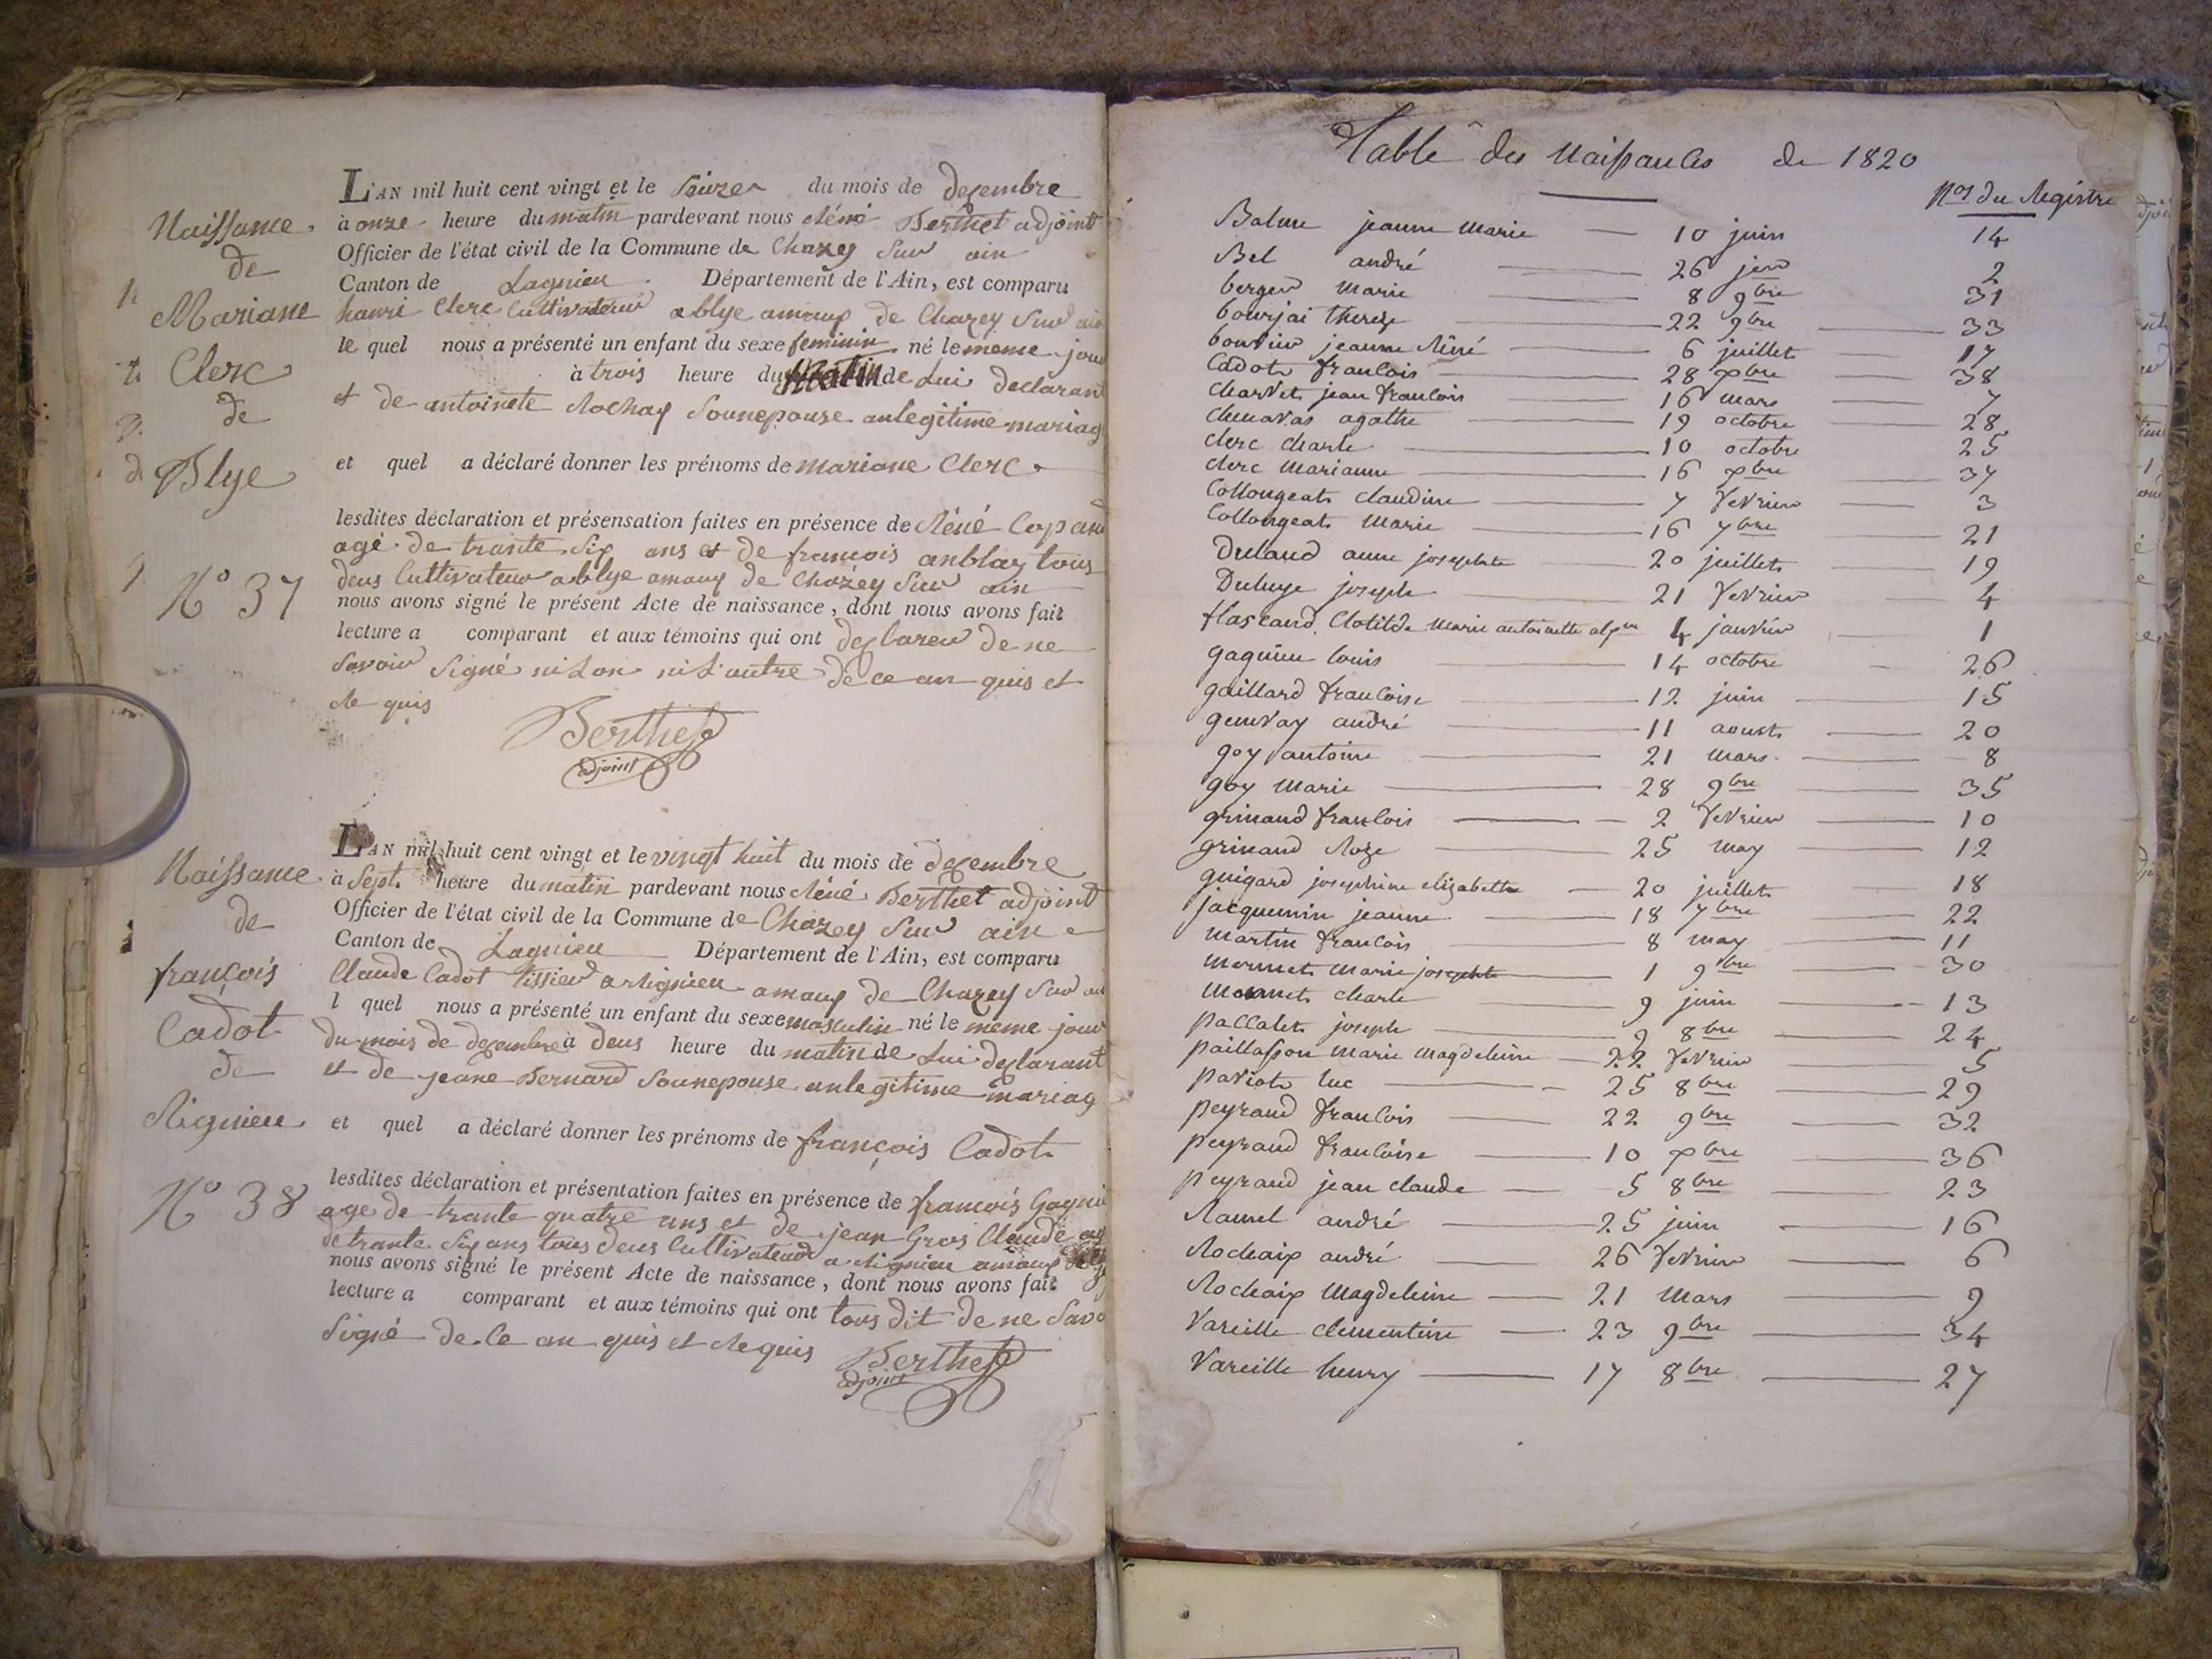 Naissance
de
Mariane
Clerc
de
Blye
N° 37
L'AN mil huit cent vingt et le seize du mois de decembre
à onze heure du matin pardevant nous Réné Berthet adjoint
Officier de l'état civil de la Commune de Chazey sur ain
Canton de Lagnieu Département de l'Ain, est comparu
hanri Clerc Cultivateur a blye amaux de Chazey sur ain
le quel nous a présenté un enfant du sexe feminin né le meme jour
à trois heure du matin de Lui declarant
et de antoinete Rochay Sounepouse anlegitime mariag
et quel a déclaré donner les prénoms de mariane Clerc
lesdites déclaration et présensation faites en présence de Réné
agé de trante six ans et de françois anblay tous
deus Cultivateur a blye amaux de Chazey sur ain
nous avons signé le présent Acte de naissance, dont nous avons fait
lecture a comparant et aux témoins qui ont declareu de ne
savoir signé ni Lon ni L'autre de ce an quis et
Re quis
Berthet
adjoint
Naissance
de
françois
Cadot
de
Rignieu
N° 38
L'AN mil huit cent vingt et le vingt huit du mois de decembre
à Sept heure du matin pardevant nous Réné Berthet adjoint
Officier de l'état civil de la Commune de Chazey sur ain
Canton de Lagnieu Département de l'Ain, est comparu
Claude Cadot tissieu a Rignieu amaux de Chazey sur ain
l quel nous a présenté un enfant du sexe masculin né le meme jour
du mois de decembre à deus heure du matin de Lui declarant
et de jeane Bernard Sounepouse anlegitime mariag
et quel a déclaré donner les prénoms de françois Cadot
lesdites déclaration et présentation faites en présence de françois
age de trante quatre ans et de jean Gros Claude ag
de trante six ans tous deus Cultivateur a Rignieu amaux
nous avons signé le présent Acte de naissance, dont nous avons fait
lecture a comparant et aux témoins qui ont tous dit de ne Savo
Signé de Ce an quis et Re quis
Berthet
adjoint
Table des Naissances de 1820
Nos du Registre
Balme jeanne Marie 10 juin 14
Bel andré 26 janv 2
berger Marie 8 9bre 31
bourjai thereze 22 9bre 33
bouvier jeanne Réné 6 juillet 17
Cadot francois 28 Xbre 38
Charvet jean francois 16 mars 7
Chenavas agathe 19 octobre 28
Clerc Charle 10 octobre 25
Clerc Marianne 16 Xbre 37
Collongeat Claudine 7 fevrier 3
Collongeat Marie 16 7bre 21
Duland anne josephte 20 juillet 19
Duluye joseph 21 fevrier 4
flascand Clotilde Marie antoinette 4 janvier 1
gagnieu louis 14 octobre 26
gaillard francoise 12 juin 15
genevay andré 11 aoust 20
goy antoine 21 mars 8
goy Marie 28 9bre 35
grinand francois 2 fevrier 10
grinand Roze 25 may 12
guigard josephine elizabette 20 juillet 18
jacquemin jeanne 18 7bre 22
Martin francois 8 may 11
Mermet Marie josephte 1 9bre 30
Mermet Charle 9 juin 13
pallatet joseph 9 8bre 24
paillasson Marie Magdeleine 22 fevrier 5
paviot luc 25 8bre 29
peyrand francois 22 9bre 32
peyrand francoise 10 Xbre 36
peyrand jean Claude 5 8bre 23
Ramel andré 25 juin 16
Rochaix andré 26 fevrier 6
Rochaix Magdeleine 21 Mars 9
Vareille Clementine 23 9bre 34
Vareille henry 17 8bre 27